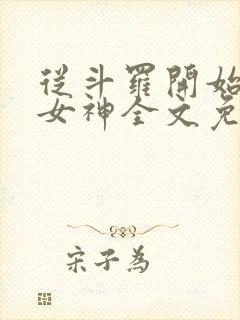 從斗羅開始
女神全文免
宋子為